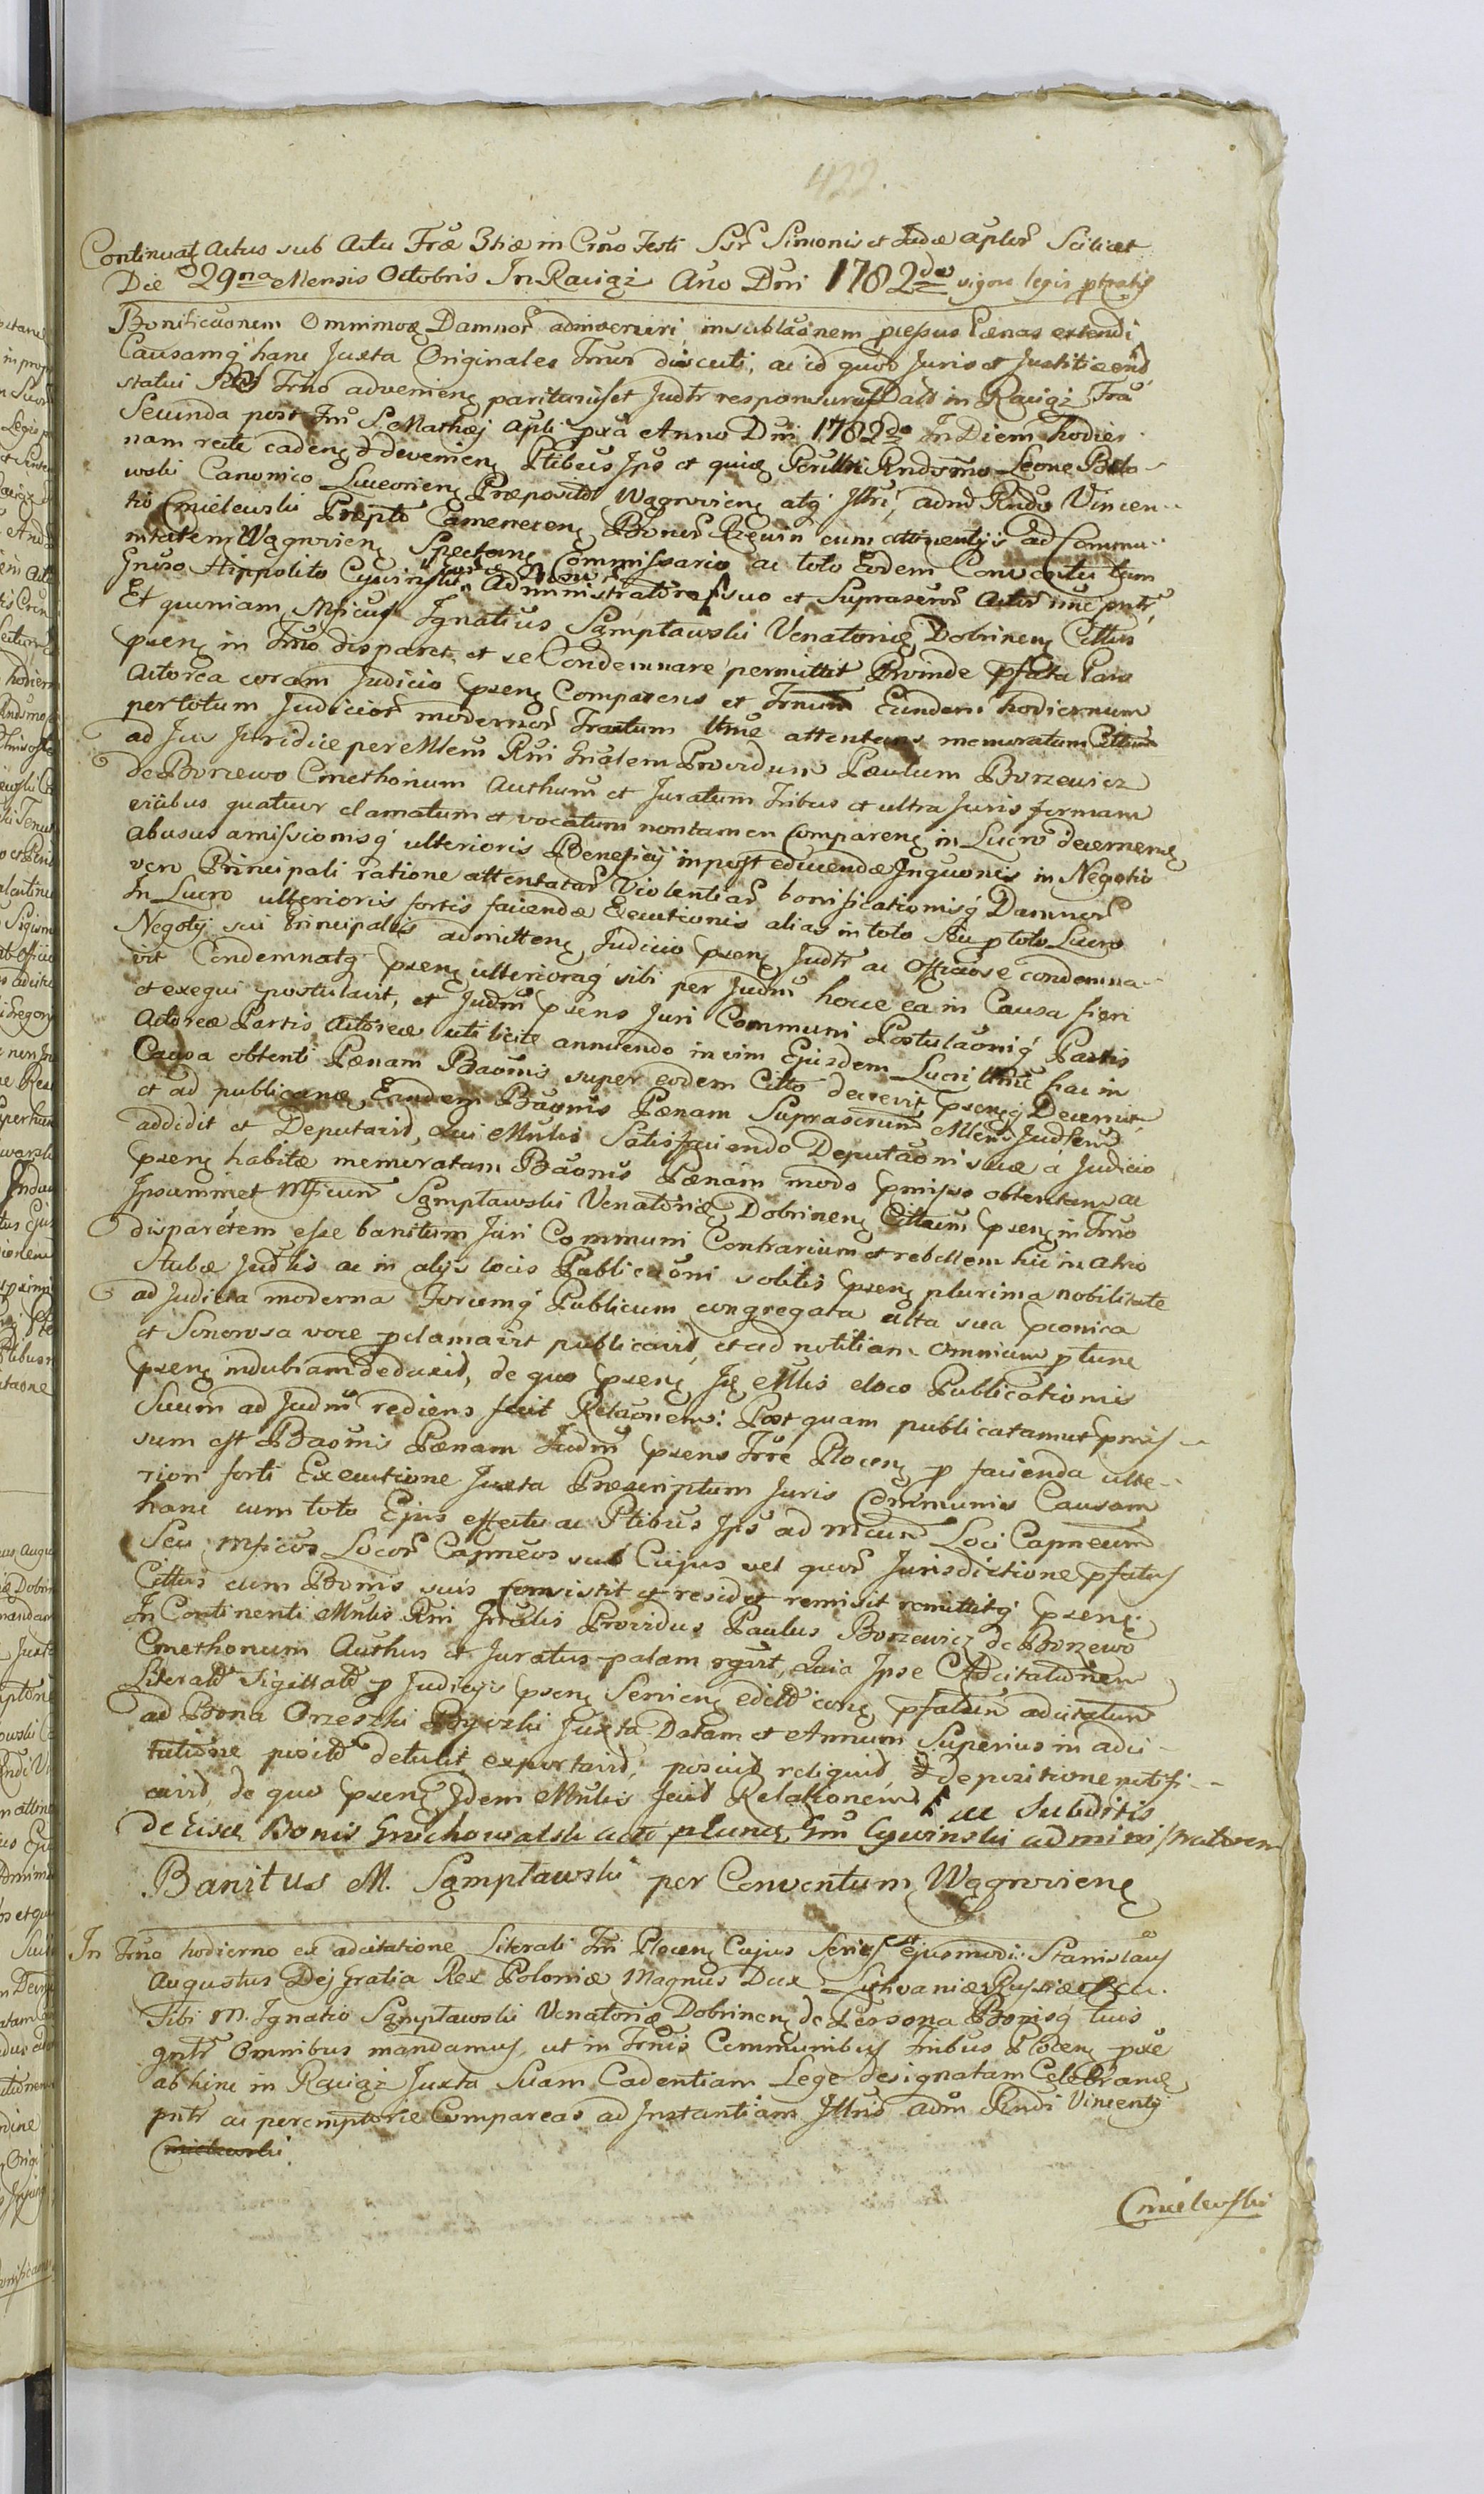 422.
Continuat Actus sub Actu Fræ 3tiæ in Crno Festi Ssr Simonis et Judæ aplor Scilicet
Die 29na Mensis Octobris In Raciąż Ano Dni 1782do vigore legis
Bonificaonem Omnimoæ Damnor adinveniri, in sublaonem pressus Pænas extendi
Causamq hanc Juxta Originales Trnos discuti, ac id quod Juris et Justitiæ
statui Trno advenien pariturus et Judtr responsurus Datt in Raciąż Fra
Secunda post Fm S. Mathæj Apli pxa Anno Dni 1782do In Diem hodier
nam recte caden & devenien Ptibus Jps et quia Perillri Rndsmo Leone
wski Canonico Luceorien Præposito Wągrovien atq Jllri, admd Rndo Vincen
tio Cmielewski Præpto Camenecen Bonor Rzewin cum attinentijs ad Commu
nitatem Wągrovien Spectan Commissario ac toto Eodem Conventu tum
Gnroso Hippolito Cywinski Administratore suo et Suprascror Actor nunc pntr
Et quoniam Mficus Ignatius Sąmpławski Venatoriæ Dobrinen Cittus
psen in Trno disparet, et se Condemnare permittit Proinde pfata Pars
Actorea coram Judicio psen Comparens et Trnum Eundem hodiernum
per totum Judicior modernor Tractum attentans memoratum Cittum
ad Jus Juridice per Mlem Rni Gnalem Providum Paulum Borzewicz
de Borzewo Cmethonum Authum et Juratum tribus et ultra Juris formam
vicibus quatuor clamatum et vocatum non tamen comparen in Lucro decernen
abusus amissionisq ulterioris Beneficij in post educendæ Inquonis in Negotio
vero Principali ratione attentatar Violentiar bonificationisq Damnor
In Lucro ulterioris fortis faciendæ Executionis alias in toto seu p toto Lucro
Negotij sui Principalis admitten Judicio psen Judtr ac Officiose condemna
vit Condemnatq psen ulterioraq sibi per Judm hocce ea in Causa fieri
et exequi postulavit, et Judm psens Juri Communi Postulaoniq Partis
Actoreæ Partis Actoreæ uti licite annuendo in vim Ejusdem Lucri hac in
Causa obtenti Pænam Baonis super eodem Citto decrevit psenq Decernit
et ad publicanæ Eandem Baonis Pænam Suprascrum Mlem
addidit et Deputavit, Qui Mlis Satisfaciendo Deputaoni suæ a Judicio
psen habitæ memoratam Baonis Pænam modo pmisso obtentam ac
Ipsummet Mficum Sąmpławski Venatoriæ Dobrinen Cittum psen in Trno
disparetem esse banitum Juri Communi Contrarium et rebellem hic in atrio
Stubæ Judlis ac in alijs locis Publicaoni solitis psen plurima nobilitate
ad Judicia moderna Forumq Publicum congregata alta sua pconica
et Sonorosa voce pclamavit publicavit, et ad notitiam omnium ptunc
psen indubiam deduxit, de quo psen Mlis eloco Publicationis
Suum ad Judm rediens fecit Relaonem: Postquam publicatamut pmis
sum est Baonis Pænam Judm psens Trre Plocen p facienda ulte
riori forti Executione Juxta Præscriptum Juris Communis Causam
hanc cum toto Ejus effectu ac Ptibus Jps ad Mcum Loci Capneum
Seu Mficos Locor Capneos sub Cujus vel quor Jurisdictione pfatus
Cittus cum Bonis suis consistit et residet remisit remittitq psen.
In Continenti Mnlis Rni Gnalis Providus Paulus Borzewicz de Borzewo
Cmethonum Authus et Juratus palam rgvit, Quia Ipse Adcitationem
Literald Sigillatd p Judicijs psen Servien pfatum adcitatum
ad Bona Orzeszki Byczki Juxta Datam et Annum Superius in adci
tatione posito detulit exportavit, posuit reliquit, & depositione notifi
cavit, de quo psen Idem Mnlis fecit Relationem ac Subditis
de Bonis Grochowalsk Cywinski administratorem
Banitus M. Sąmpławski per Conventum Wągrovien
In Trno hodierno ex adcitatione Literali Trri Plocen Cujus Series est ejusmodi: Stanislaus
Augustus Dej Gratia Rex Poloniæ Magnus Dux Lithvaniæ Russiæ
Tibi M. Ignatio Sąmpławski Venatoriæ Dobrinen de Persona Bonisq tuis
gntr Omnibus mandamus, ut in Trnis Communibus Tribus Plocen pxe
abhinc in Raciąż Juxta Suam Cadentiam Lege designatam Celebrand
pntr ac peremptorie Compareas ad Instantiam Jllris adm Rndi Vincentij
Cmielewski.
Cmielewski